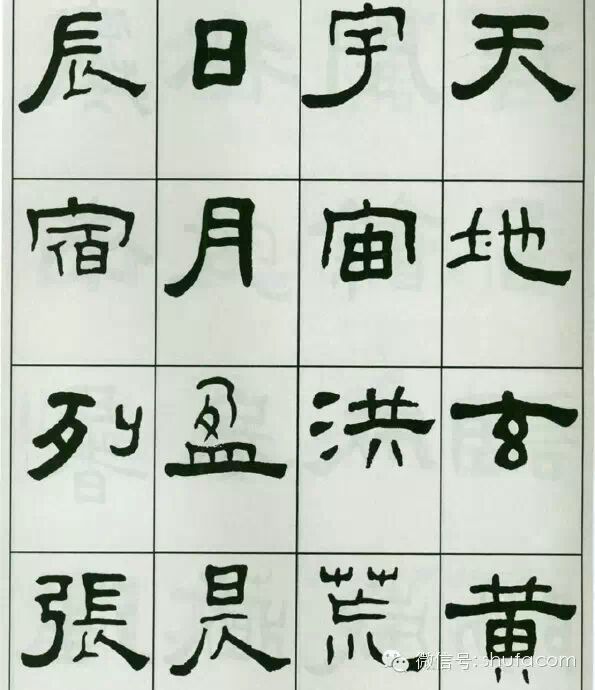 天地玄黄
宇宙洪荒
日月盈昃
辰宿列張
微信号: shufacom